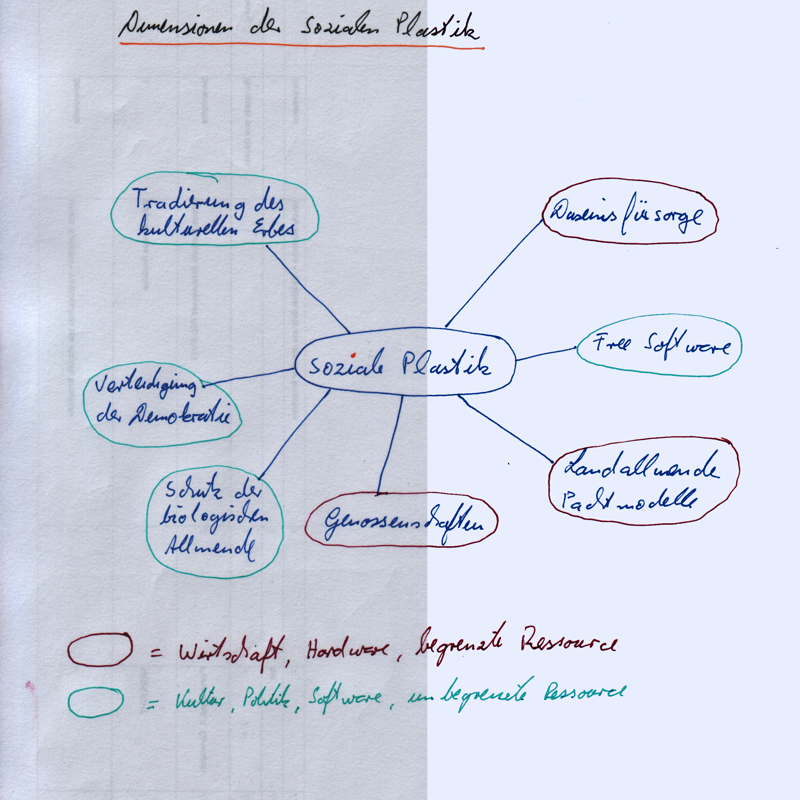 Dimensionen der sozialen Plastik
Tradierung des
kulturellen Erbes
Daseinsfürsorge
Free Software
soziale Plastik
Verteidigung
der Demokratie
Landallmende
Pachtmodelle
Schutz der
biologischen
Allmende
Genossenschaften
= Wirtschaft, Hardware, begrenzte Ressource
= Kultur, Politik, Software, unbegrenzte Ressource